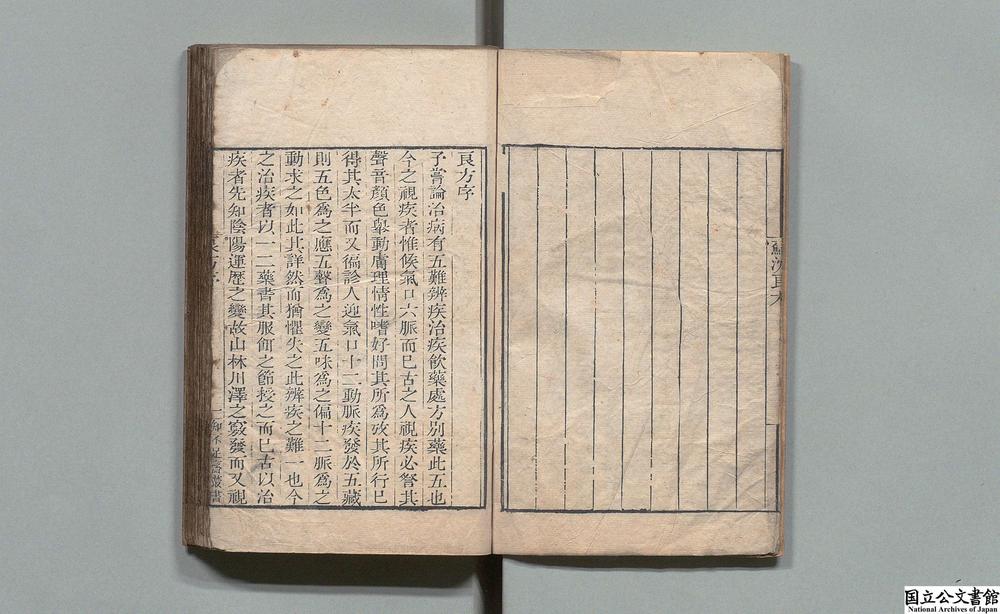 良方序
予嘗論治病有五難辨疾治疾飲藥處方別藥此五也
今之視疾者惟候氣口六脈而已古之人視疾必詧其
聲音顏色舉動膚理情性嗜好問其所爲攷其所行已
得其太半而又徧診人迎氣口十二動脈疾發於五藏
則五色爲之應五聲爲之變五味爲之偏十二脈爲之
動求之如此其詳然而猶懼失之此辨疾之難一也今
之治疾者以一二藥書其服餌之節授之而已古以治
疾者先知陰陽運歷之變故山林川澤之竅發而又視
一 知不足齋叢書
国立公文書館
National Archives of Japan